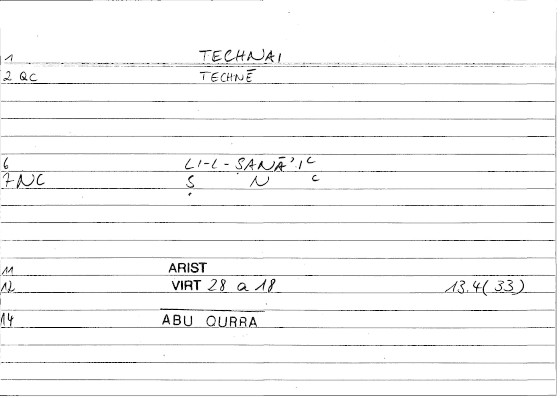 1 TECHNAI
2 QC TECHNĒ
6 LI-L-ṢANĀʾIʿ
7 NC Ṣ N ʿ
11 ARIST
12 VIRT 28 a 18 13.4(33)
14 ABU QURRA